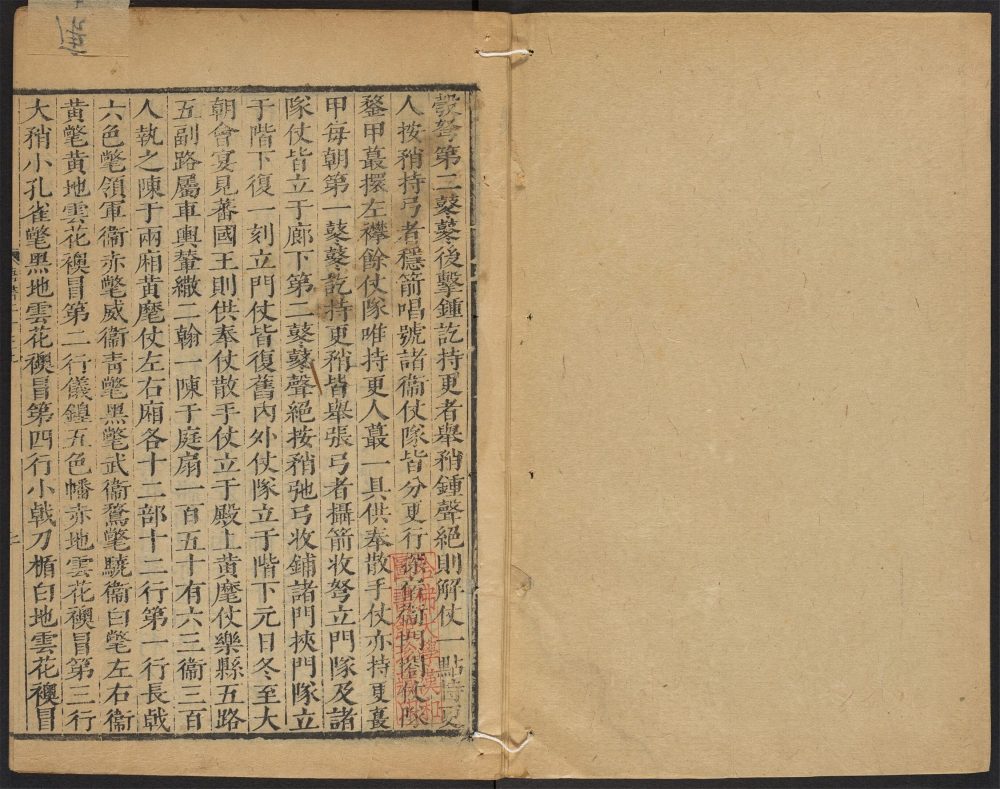 彀弩第二鼕鼕後擊鍾訖持更者舉矟鍾聲絕則解仗一點持更
人按矟持弓者穩箭唱號諸衞仗隊皆分更行探宿衞門閤仗隊
鍪甲蕞擐左襻餘仗隊唯持更人蕞一具供奉散手仗亦持更蕞
甲每朝第一鼕鼕訖持更矟皆舉張弓者攝箭收弩立門隊及諸
隊仗皆立于廊下第二鼕鼕聲絕按矟弛弓收鋪諸門挾門隊立
于階下復一刻立門仗皆復舊內外仗隊立于階下元日冬至大
朝會宴見蕃國王則供奉仗散手仗立于殿上黃麾仗樂縣五路
五副路屬車輿輦繖二翰一陳于庭扇一百五十有六三衞三百
人執之陳于兩廂黃麾仗左右廂各十二部十二行第一行長戟
六色氅領軍衞赤氅威衞青氅黑氅武衞鶩氅驍衞白氅左右衞
黃氅黃地雲花襖冒第二行儀鍠五色幡赤地雲花襖冒第三行
大矟小孔雀氅黑地雲花襖冒第四行小戟刀楯白地雲花襖冒